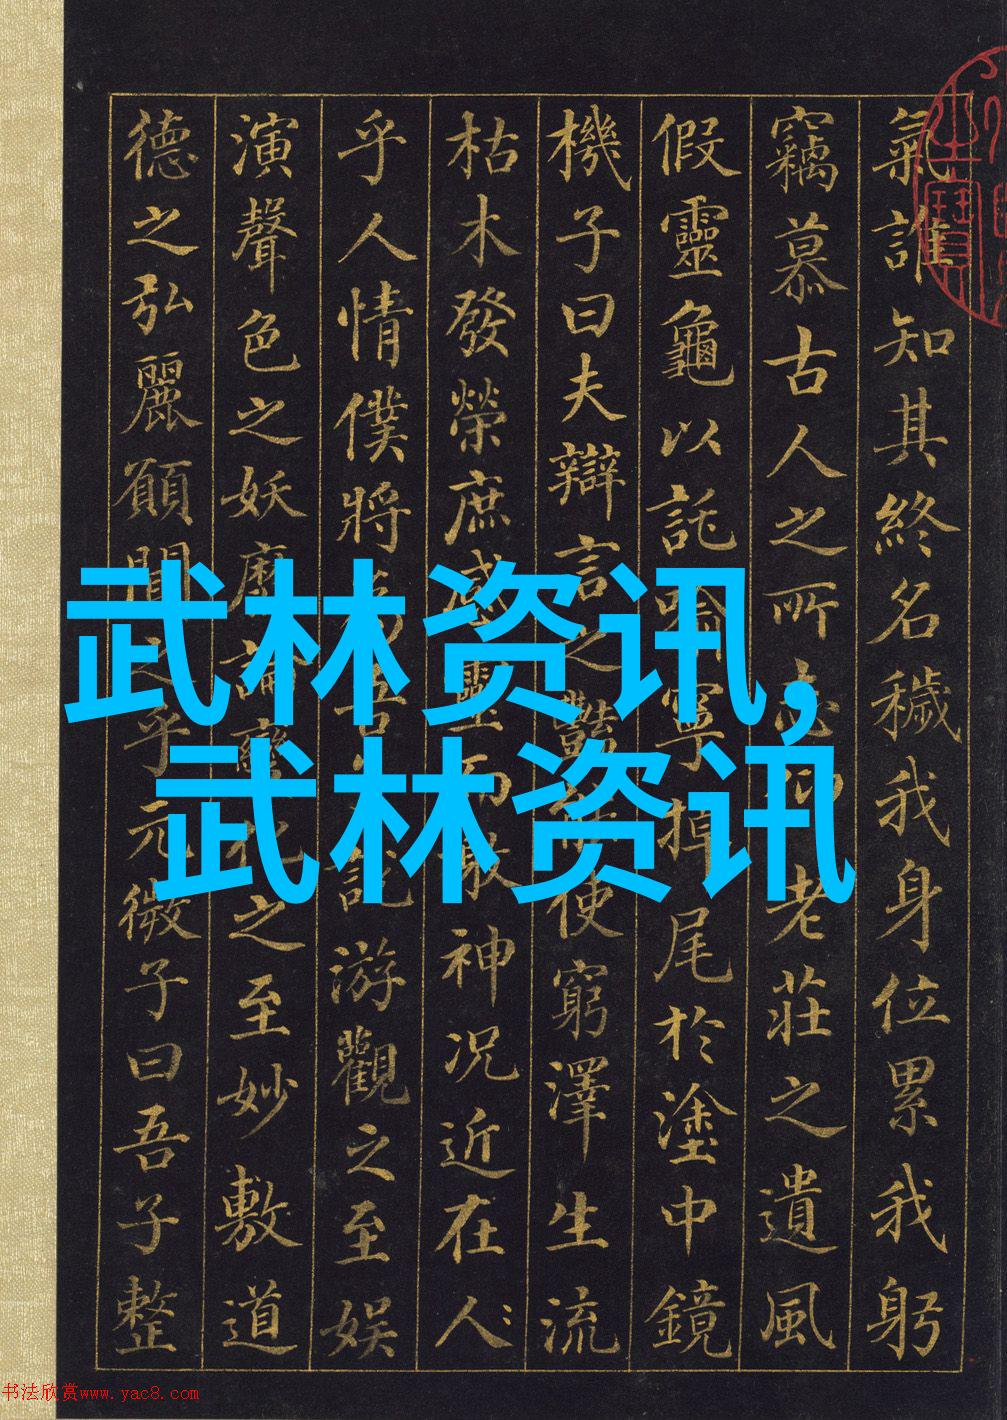 氣誰知其終名穢我身位累我躬
竊慕古人之所志仰老莊之遺風
假靈龜以託喻寧掉尾於塗中鏡
機子曰夫辯言之豔能使窮澤生流
枯木發榮庶感靈而激神況近在人
乎人情僕將為吾子說游觀之至娛
演聲色之妖靡論變化之至妙敷道
德之弘麗願聞之乎元微子曰吾子整
武林资讯,
武林资讯
书法欣赏www.yac8.com